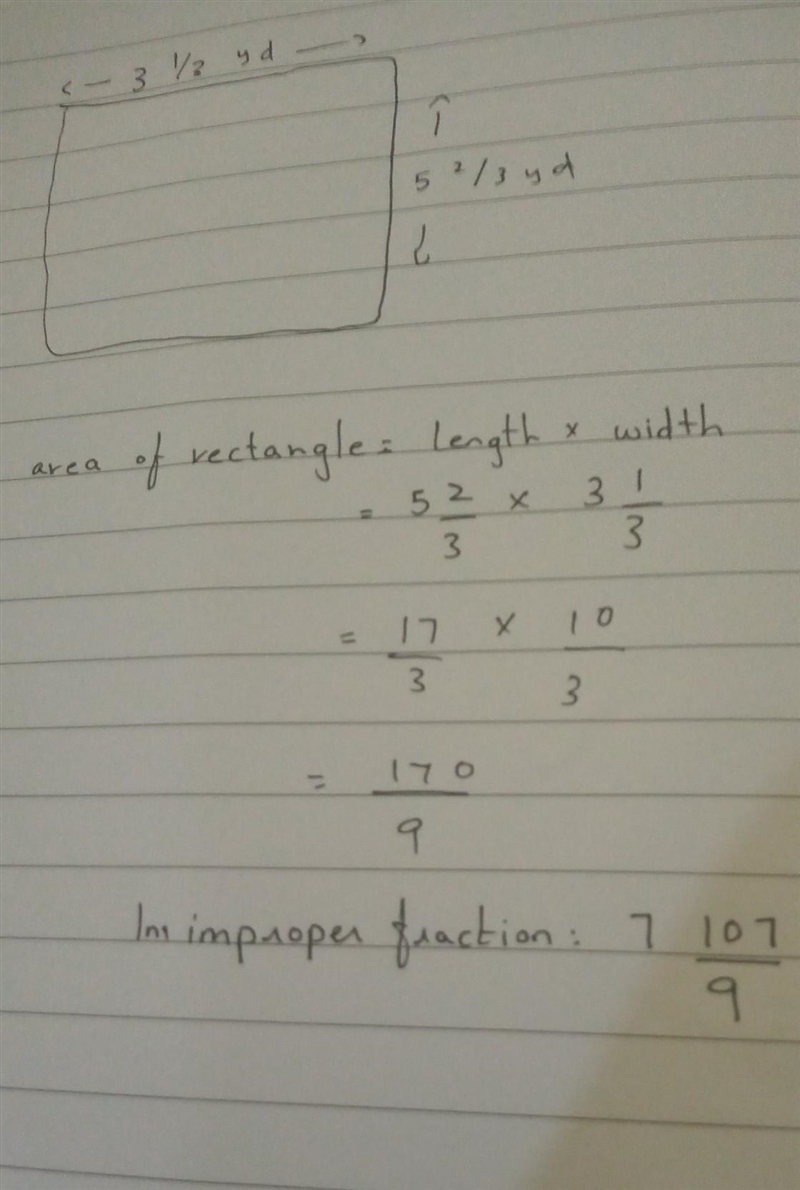 <- 3 1/3 yd ->
5 2/3 yd
area of rectangle = length × width
= 5 2/3 × 3 1/3
= 17/3 × 10/3
= 170/9
In improper fraction: 7 107/9